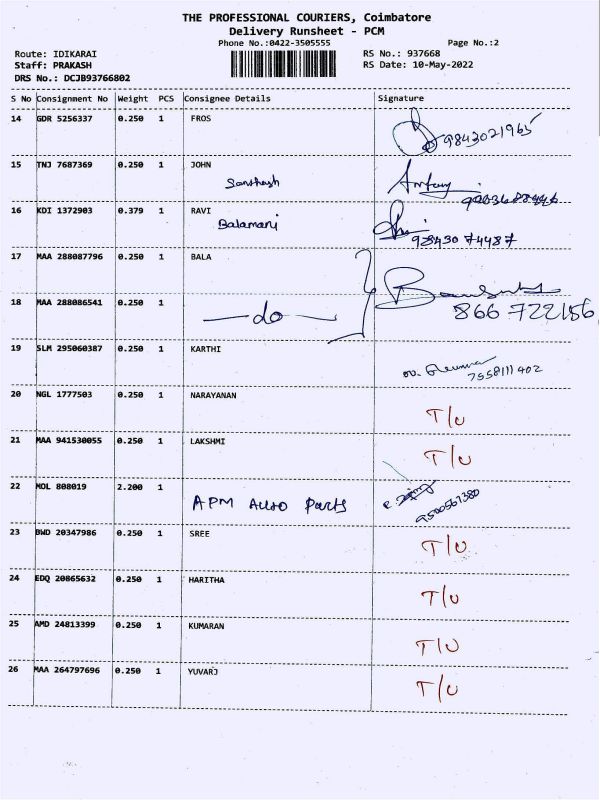 THE PROFESSIONAL COURIERS, Coimbatore
Delivery Runsheet - PCM
Phone No.:0422-3505555
Page No.:2
Route: IDIKARAI
RS No.: 937668
Staff: PRAKASH
RS Date: 10-May-2022
DRS No.: DCJB93766802
S No Consignment No Weight PCS Consignee Details Signature
14 GDR 5256337 0.250 1 FROS
9843021965
15 TNJ 7687369 0.250 1 JOHN
Santhosh Antony
16 KDI 1372903 0.379 1 RAVI
Balamani
98430 74487
17 MAA 288087796 0.250 1 BALA
18 MAA 288086541 0.250 1
do
866 722156
19 SLM 295060387 0.250 1 KARTHI
7558111402
20 NGL 1777503 0.250 1 NARAYANAN
T/U
21 MAA 941530055 0.250 1 LAKSHMI
T/U
22 MOL 808019 2.200 1
APM Auto Parts
9500567380
23 BWD 20347986 0.250 1 SREE
T/U
24 EDQ 20865632 0.250 1 HARITHA
T/U
25 AMD 24813399 0.250 1 KUMARAN
T/U
26 MAA 264797696 0.250 1 YUVARJ
T/U